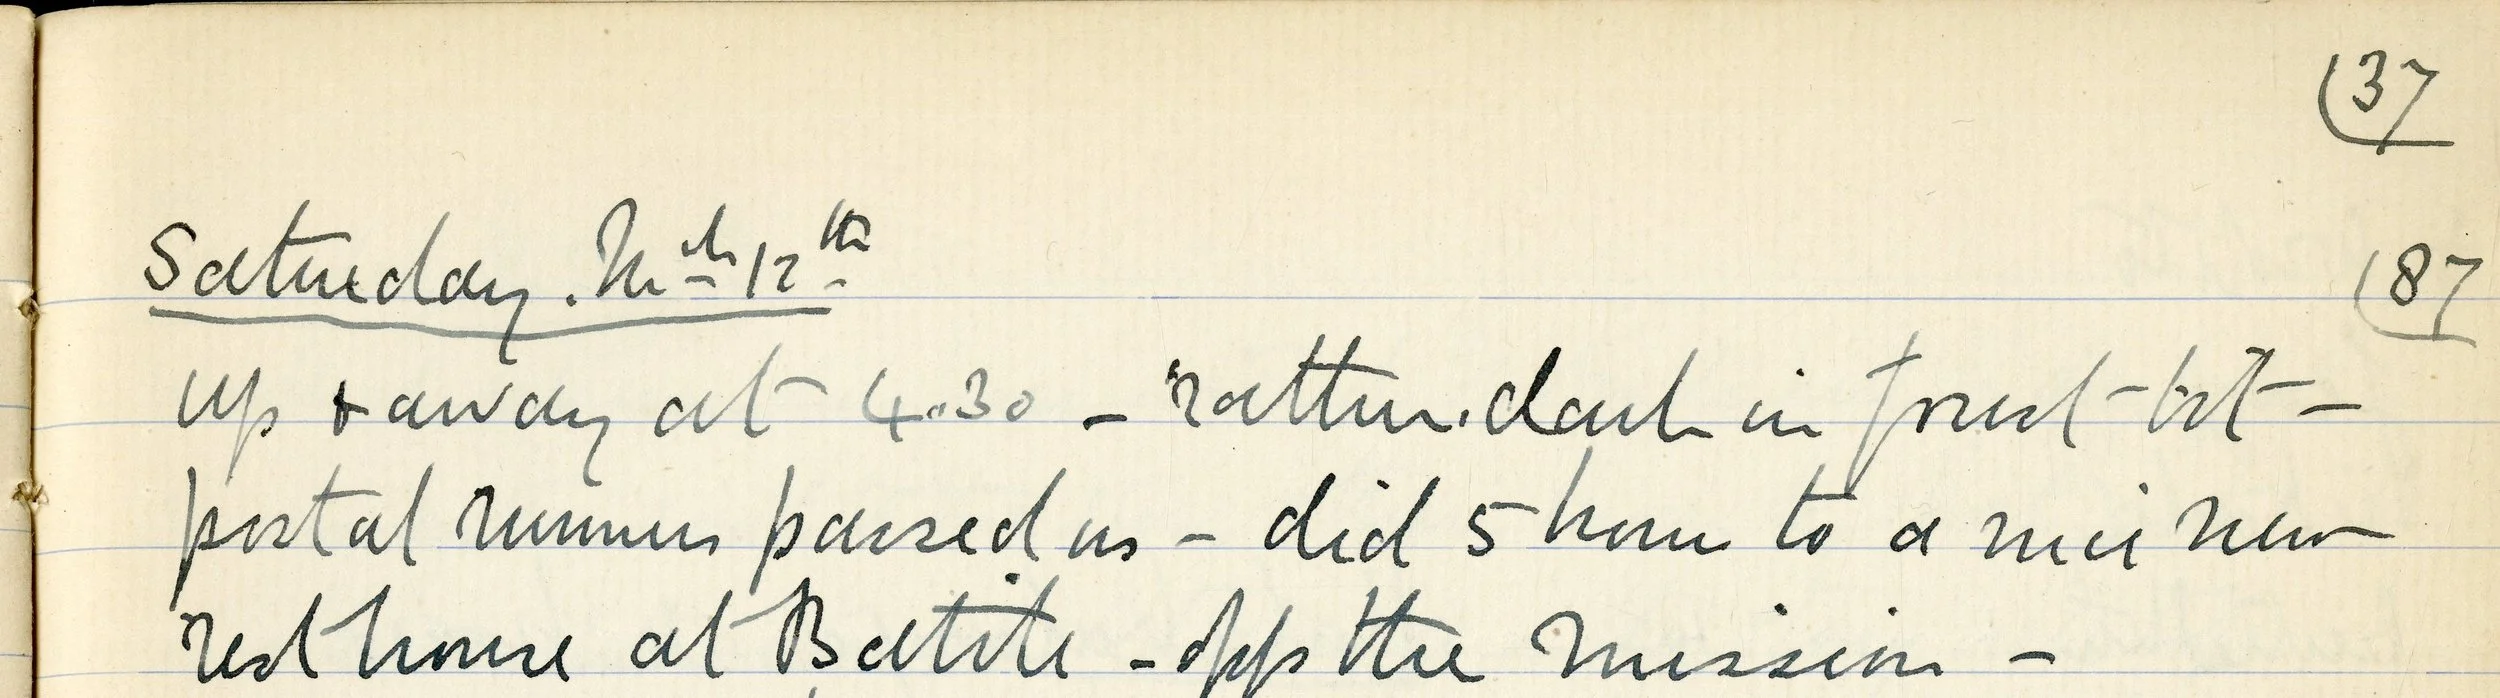 37
Saturday. Mch 12th
87
up & away at 4.30 – rather dark in forest – but –
postal runner passed us – did 5 hours to a nice new
rest house at Batiti – opps the mission –